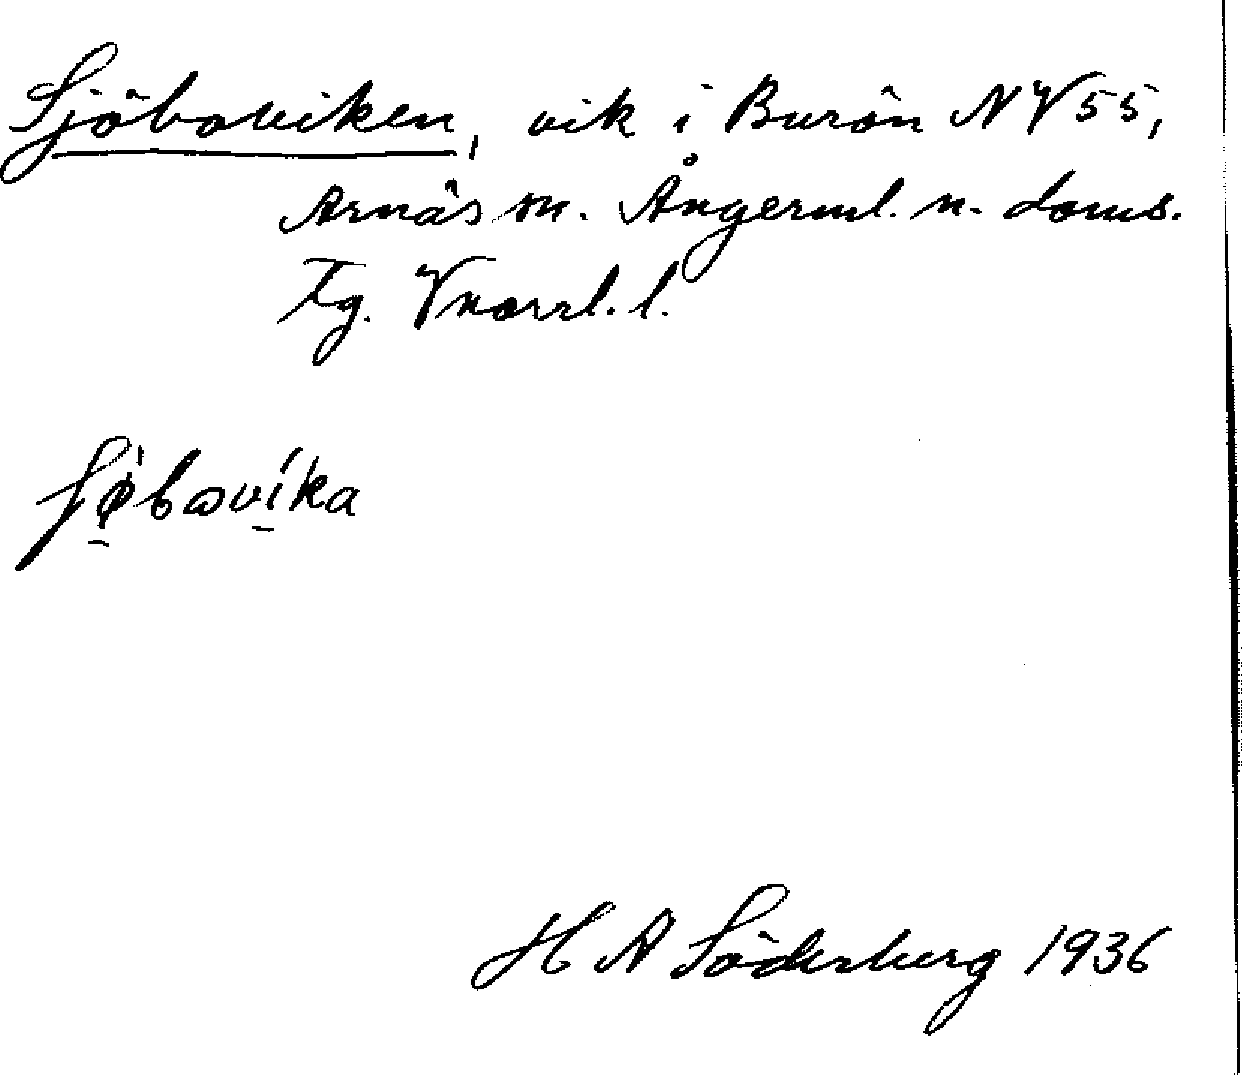 Sjöboviken, vik i Burön NV 55,
Arnäs sn. Ångerml. n. doms.
Tg. Vnorrl. l.
H A Söderberg 1936